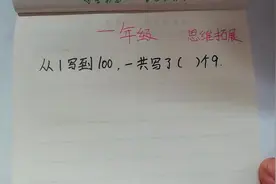 一年级 思维拓展
从1写到100,一共写了( )个9.